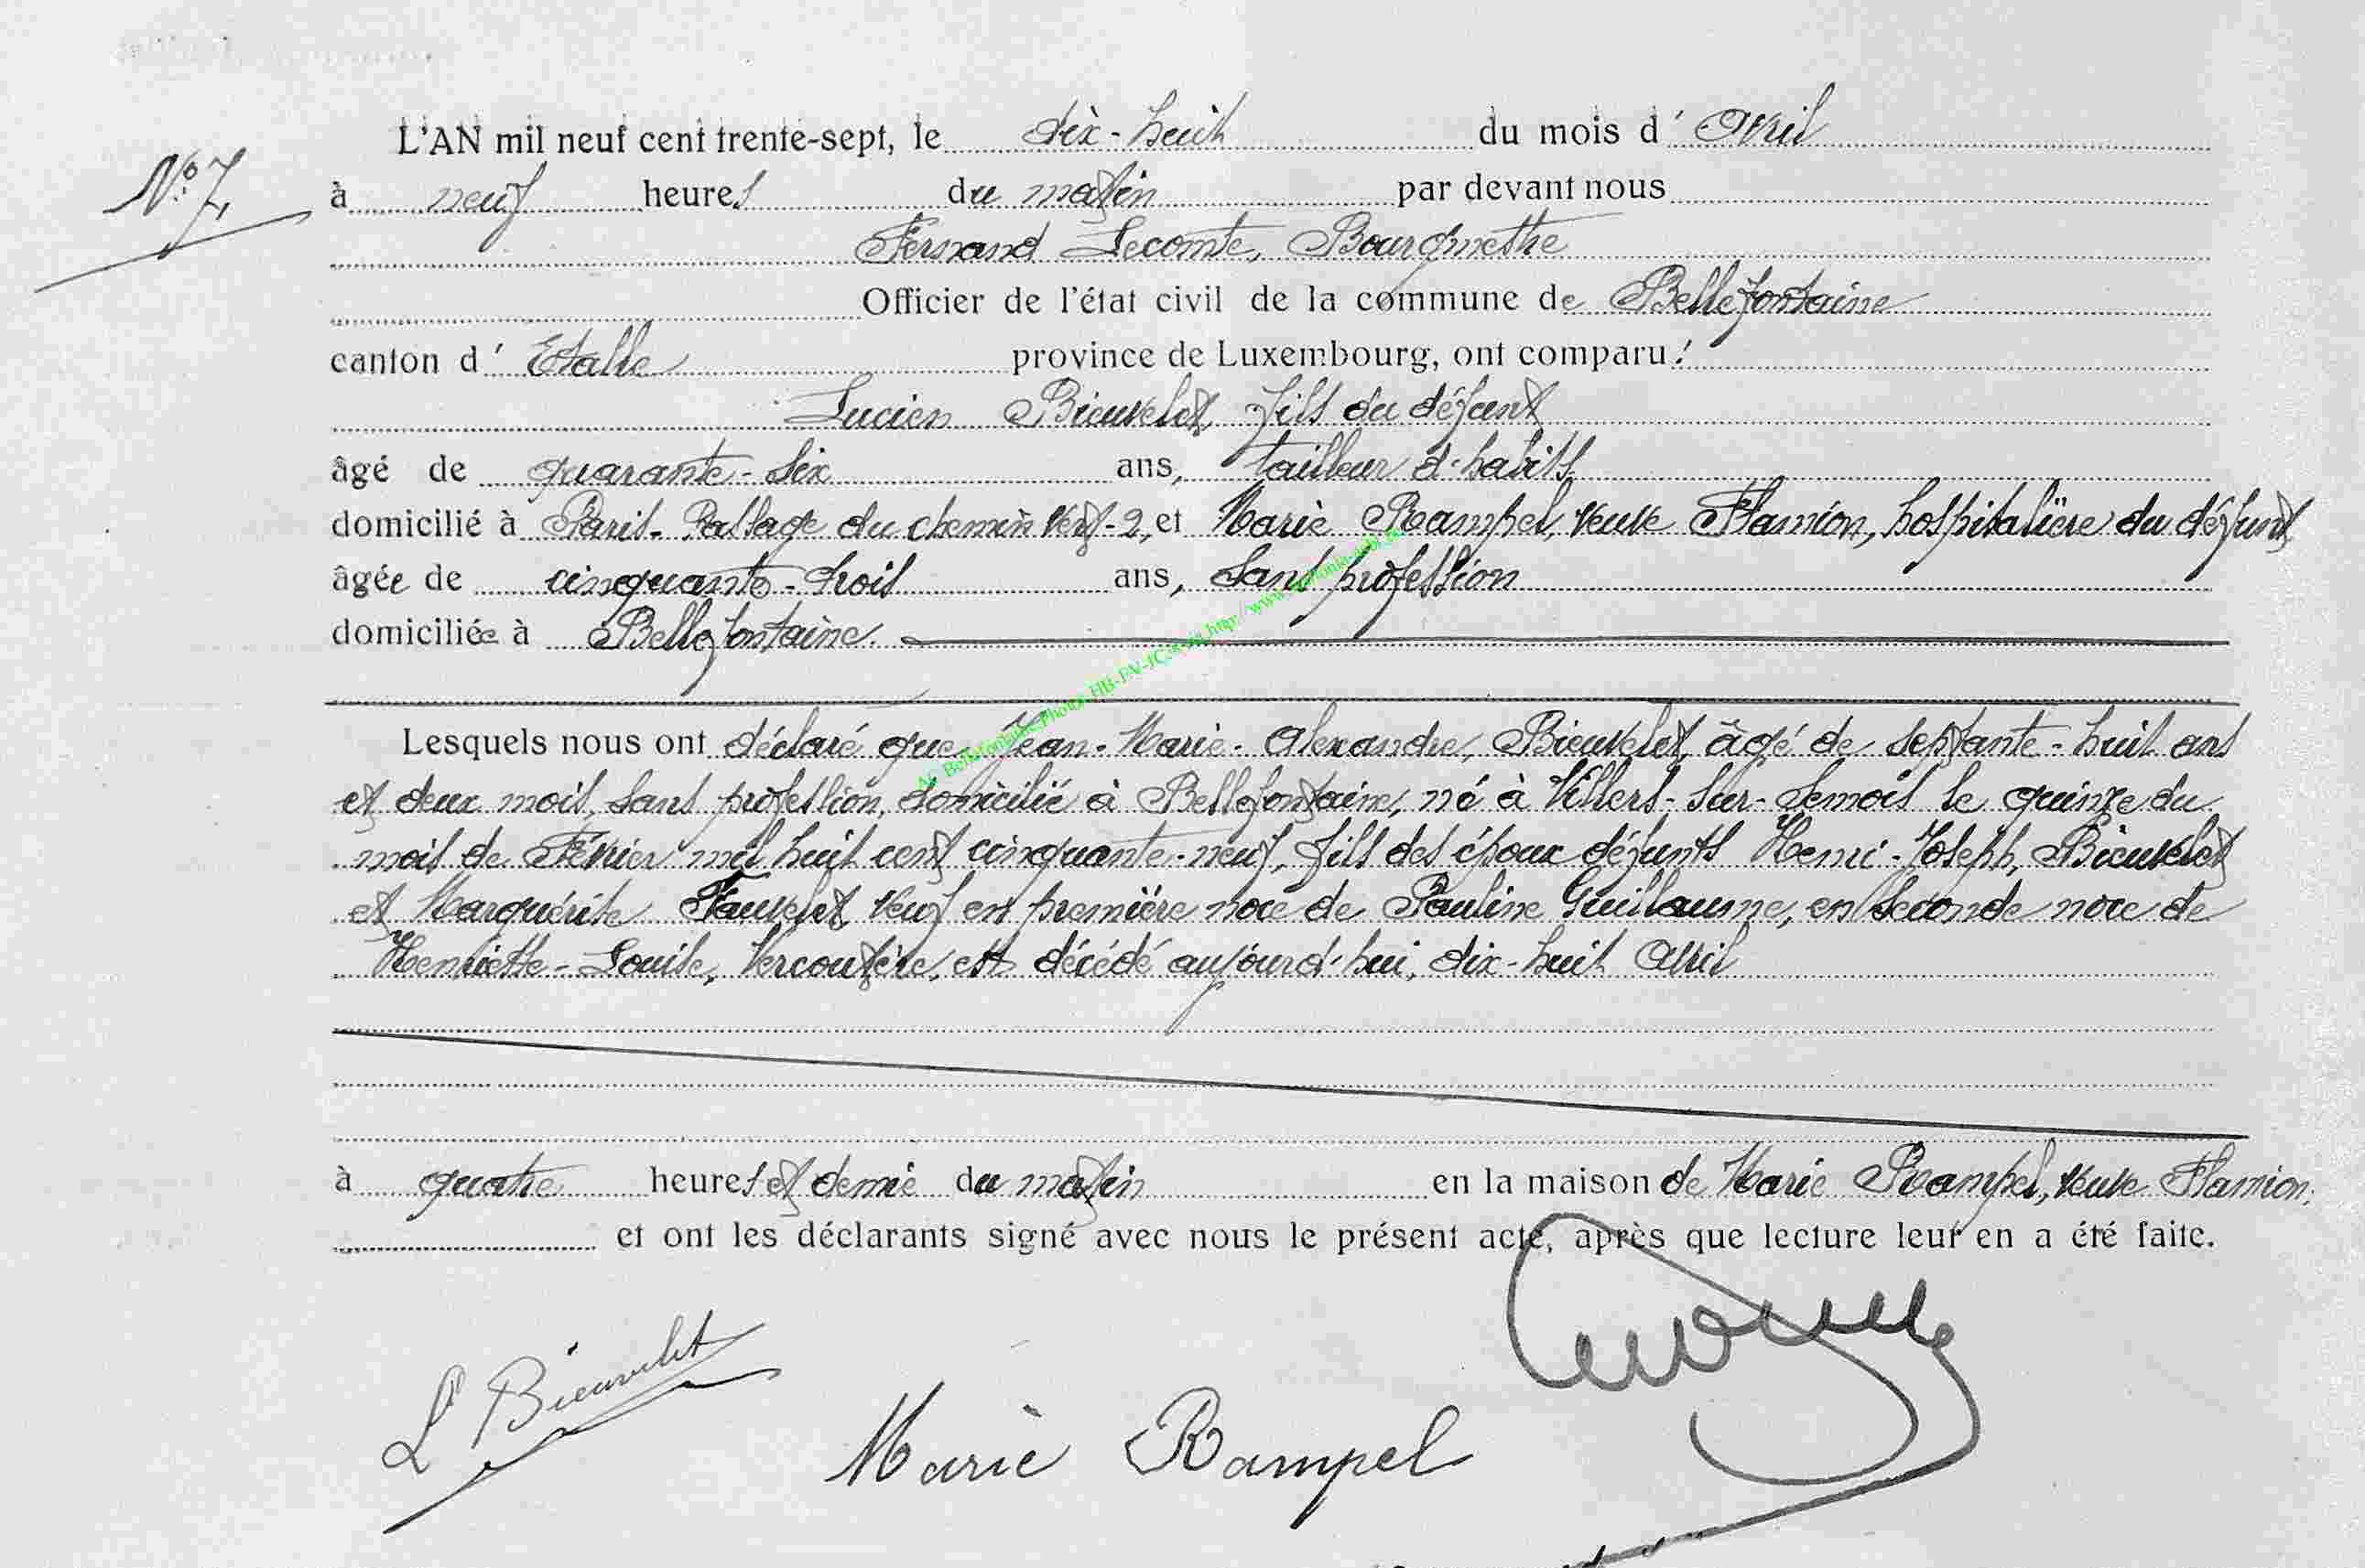 L'AN mil neuf cent trente-sept, le dix-huit du mois d' Avril
N° 7
à neuf heures du matin par devant nous
Fernand Lecomte, Bourgmestre
Officier de l'état civil de la commune de Bellefontaine
canton d' Etalle province de Luxembourg, ont comparu :
Lucien Bieuvelet, fils du défunt
âgé de quarante-six ans, tailleur d'habits
domicilié à Paris. Passage du chemin Vert-2, et Marie Rampel, veuve Flamion, hospitalière du défunt
âgée de cinquante-trois ans, sans profession
domiciliée à Bellefontaine.
Lesquels nous ont déclaré que Jean-Marie-Alexandre, Bieuvelet, âgé de septante-huit ans
et deux mois, sans profession, domicilié à Bellefontaine, né à Villers-sur-Semois le quinze du
mois de Février mil huit cent cinquante-neuf, fils des époux défunts Henri-Joseph, Bieuvelet
et Marguérite Fauvelet veuf en première noce de Pauline Guillaume, en seconde noce de
Henriette-Louise, Vercoutère, est décédé aujourd'hui, dix-huit Avril
à quatre heures et demie du matin en la maison de Marie Rampel, veuve Flamion,
et ont les déclarants signé avec nous le présent acte, après que lecture leur en a été faite.
L Bieuvelet
Marie Rampel